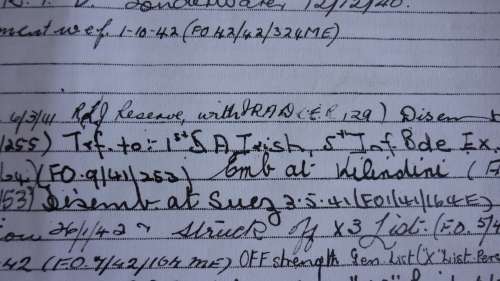 Sonderwater, 12/12/40.
ment w.e.f. 1-10-42 (FO 42/42/324ME)
4/3/41 Reserve, with (E.R, 129) Disemb
/255) Trf. to:- 1st S.A. Irish, 5th Inf. Bde Ex.
(FO.9/41/253) Emb at Kilindini (F
/53) Disemb. at Suez 2.5.41 (FO1/41/164E)
26/1/42 Struck off X3 List. (F.O. 5/4
42 (F.O.7/42/164 ME) OFF strength Gen List ("X" List Pers